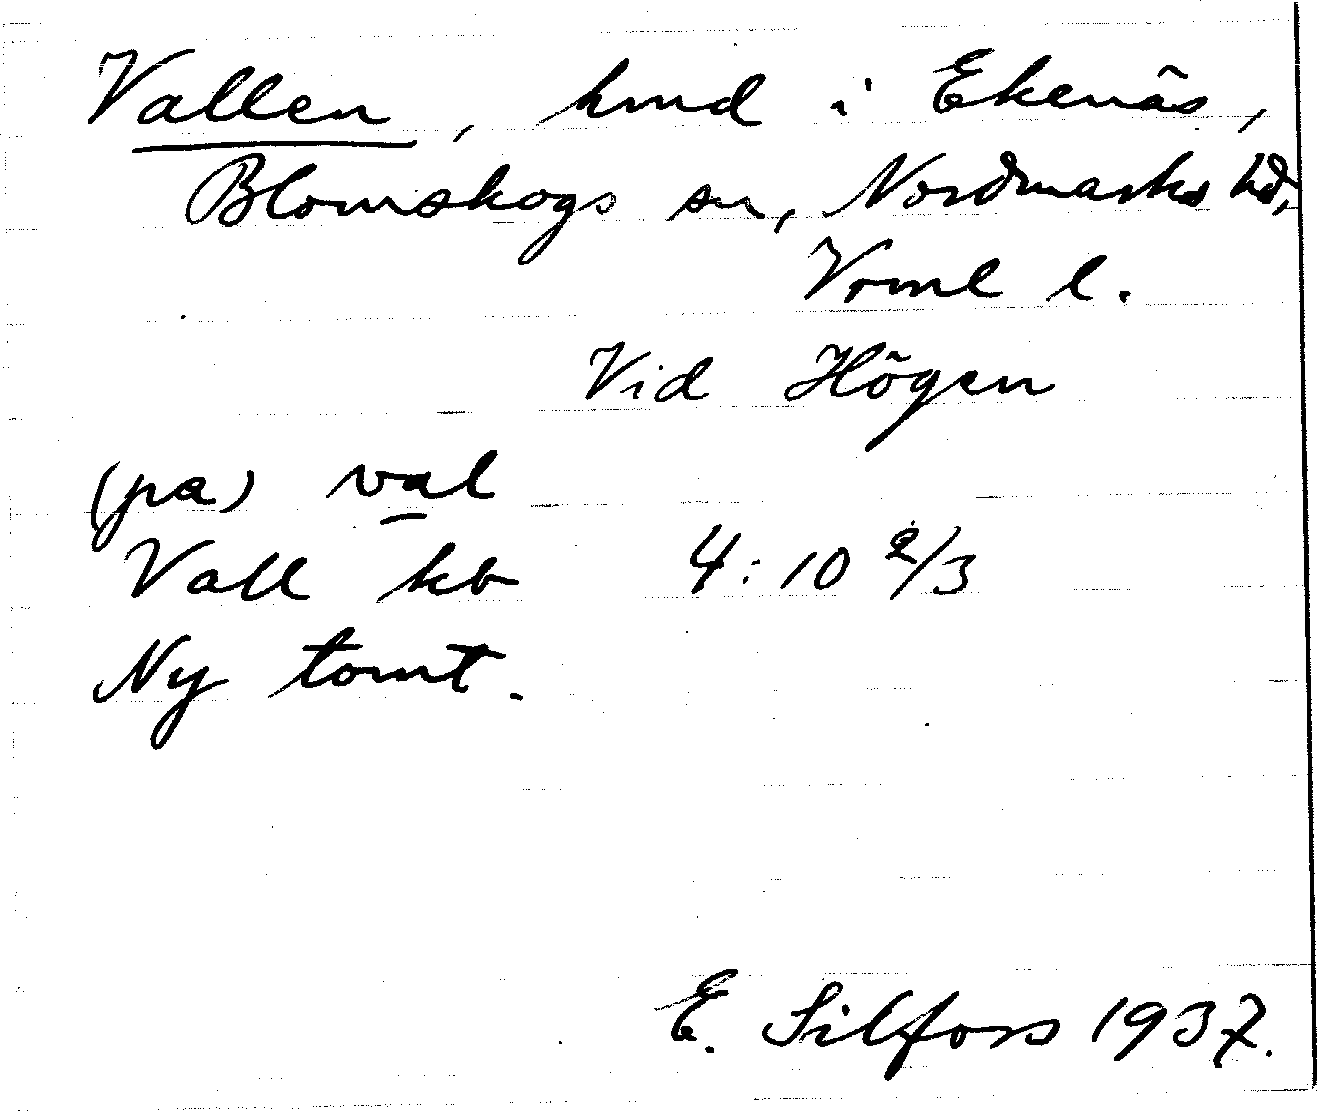 Vallen, hmd i Ekenäs,
Blomskogs sn, Nordmarks hd,
Vrml l.
Vid Högen
(pa) val
Vall kb 4:10 2/3
Ny tomt.
E. Silfors 1937.